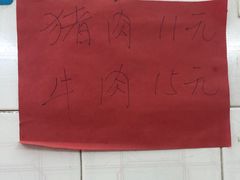 猪肉 11元
牛肉 15元